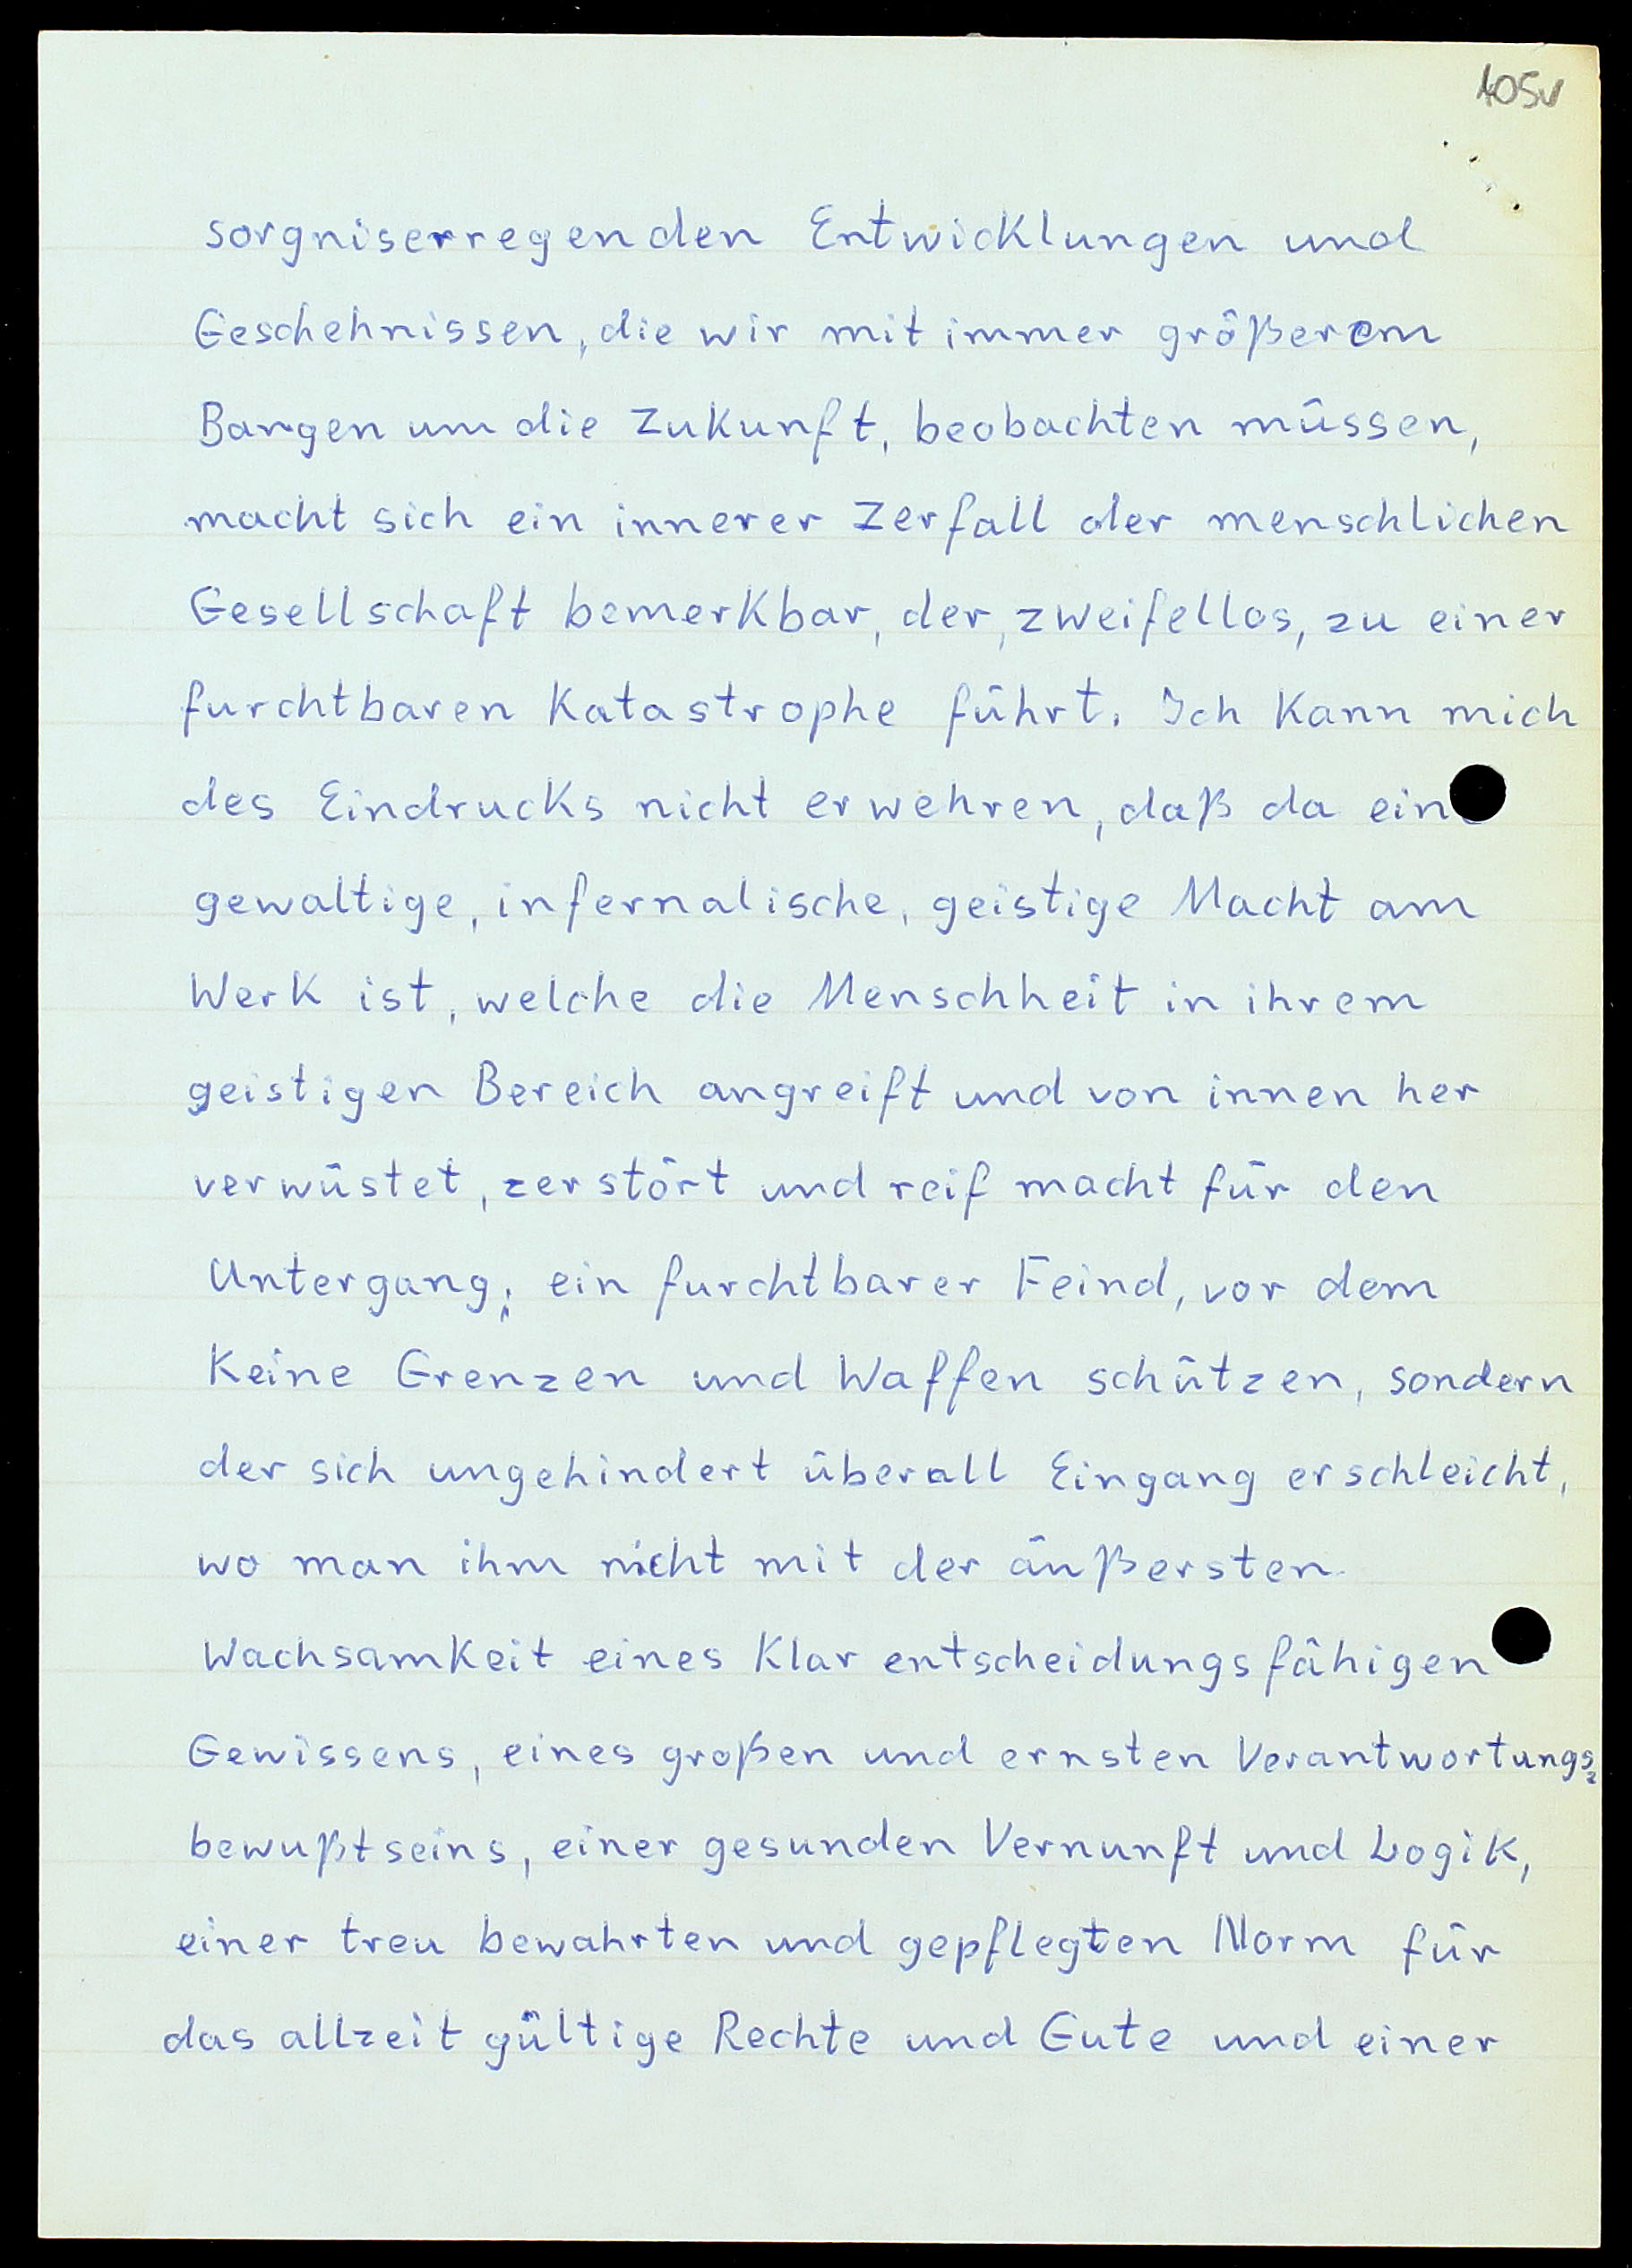 105v
sorgniserregenden Entwicklungen und
Geschehnissen, die wir mit immer größerem
Bangen um die Zukunft, beobachten müssen,
macht sich ein innerer Zerfall der menschlichen
Gesellschaft bemerkbar, der, zweifellos, zu einer
furchtbaren Katastrophe führt. Ich kann mich
des Eindrucks nicht erwehren, daß da eine
gewaltige, infernalische, geistige Macht am
Werk ist, welche die Menschheit in ihrem
geistigen Bereich angreift und von innen her
verwüstet, zerstört und reif macht für den
Untergang; ein furchtbarer Feind, vor dem
keine Grenzen und Waffen schützen, sondern
der sich ungehindert überall Eingang erschleicht,
wo man ihm nicht mit der äußersten
Wachsamkeit eines klar entscheidungsfähigen
Gewissens, eines großen und ernsten Verantwortungs=
bewußtseins, einer gesunden Vernunft und Logik,
einer treu bewahrten und gepflegten Norm für
das allzeit gültige Rechte und Gute und einer